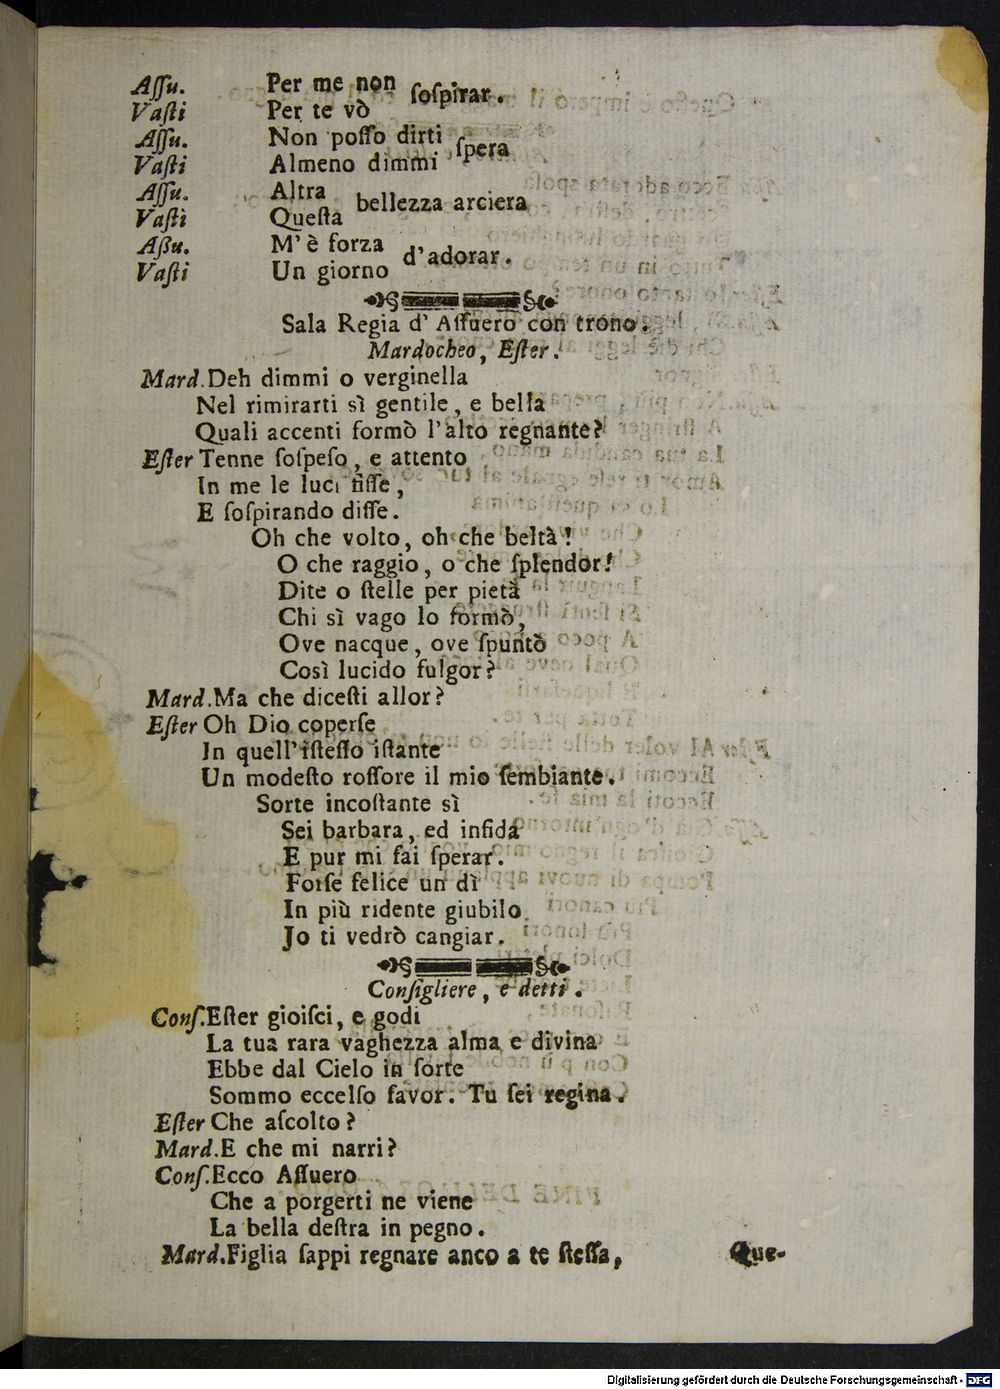 Aſſu. Per me non ſoſpirar.
Vaſti Per te vò
Aſſu. Non poſſo dirti ſpera
Vaſti Almeno dimmi
Aſſu. Altra bellezza arciera
Vaſti Queſta
Aßu. M' è forza d'adorar.
Vaſti Un giorno
Sala Regia d' Aſſuero con trono.
Mardocheo, Eſter.
Mard. Deh dimmi o verginella
Nel rimirarti sì gentile, e bella
Quali accenti formò l'alto regnante?
Eſter Tenne ſoſpeſo, e attento
In me le luci fiſſe,
E ſoſpirando diſſe.
Oh che volto, oh che beltà!
O che raggio, o che ſplendor!
Dite o ſtelle per pietà
Chi sì vago lo formò,
Ove nacque, ove ſpuntò
Così lucido fulgor?
Mard. Ma che diceſti allor?
Eſter Oh Dio coperſe
In quell'iſteſſo iſtante
Un modeſto roſſore il mio ſembiante.
Sorte incoſtante sì
Sei barbara, ed infida
E pur mi fai ſperar.
Forſe felice un dì
In più ridente giubilo
Jo ti vedrò cangiar.
Conſigliere, e detti.
Conſ. Eſter gioiſci, e godi
La tua rara vaghezza alma e divina
Ebbe dal Cielo in ſorte
Sommo eccelſo favor. Tu ſei regina.
Eſter Che aſcolto?
Mard. E che mi narri?
Conſ. Ecco Aſſuero
Che a porgerti ne viene
La bella deſtra in pegno.
Mard. Figlia ſappi regnare anco a te ſteſſa,
Que-
Digitalisierung gefördert durch die Deutsche Forschungsgemeinschaft - DFG